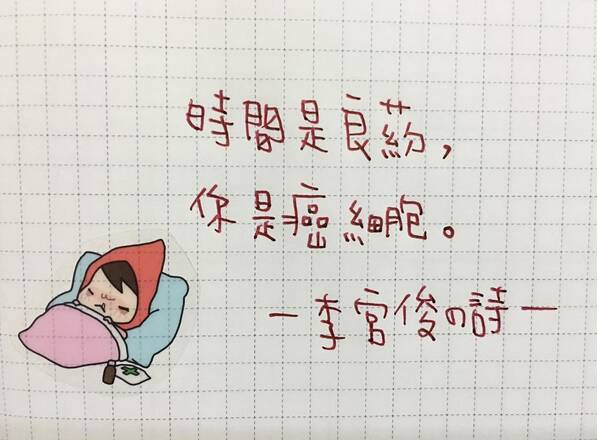 時間是良葯,
你是癌細胞。
－李宮後の詩－